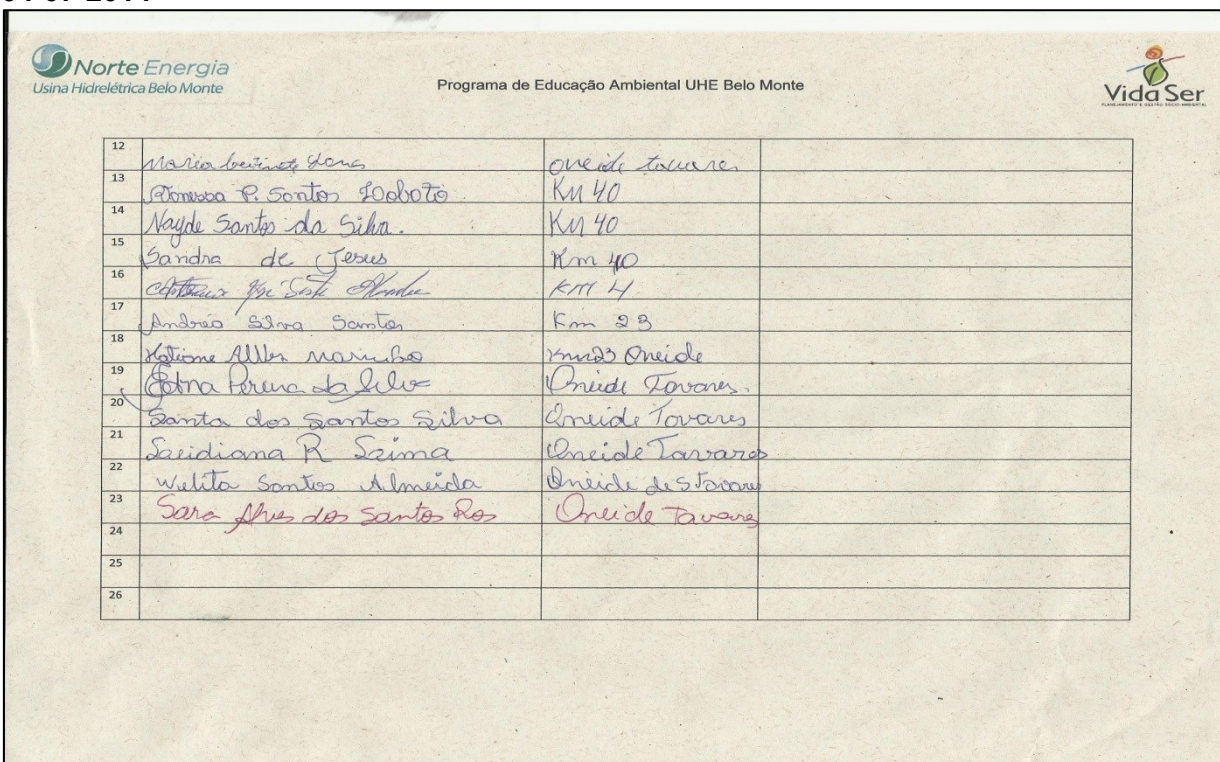 Norte Energia
Usina Hidrelétrica Belo Monte
Programa de Educação Ambiental UHE Belo Monte
Vida Ser
PLANEJAMENTO E GESTÃO SÓCIO-AMBIENTAL
12 Maria oneide tavares
13 P. Santos Km 40
14 Nayde Santos da Silva. Km 40
15 Sandra de Jesus Km 40
16 Km 4
17 Andréa Silva Santos Km 23
18 Marinho Km23 Oneide
19 Edna Pereira da Silva Oneide Tavares.
20 Santa dos Santos Silva Oneide Tavares
21 R Oneide Tavares
22 Welita Santos Almeida Oneide de S Tavares
23 Sara Alves dos Santos Ros Oneide Tavares
24
25
26